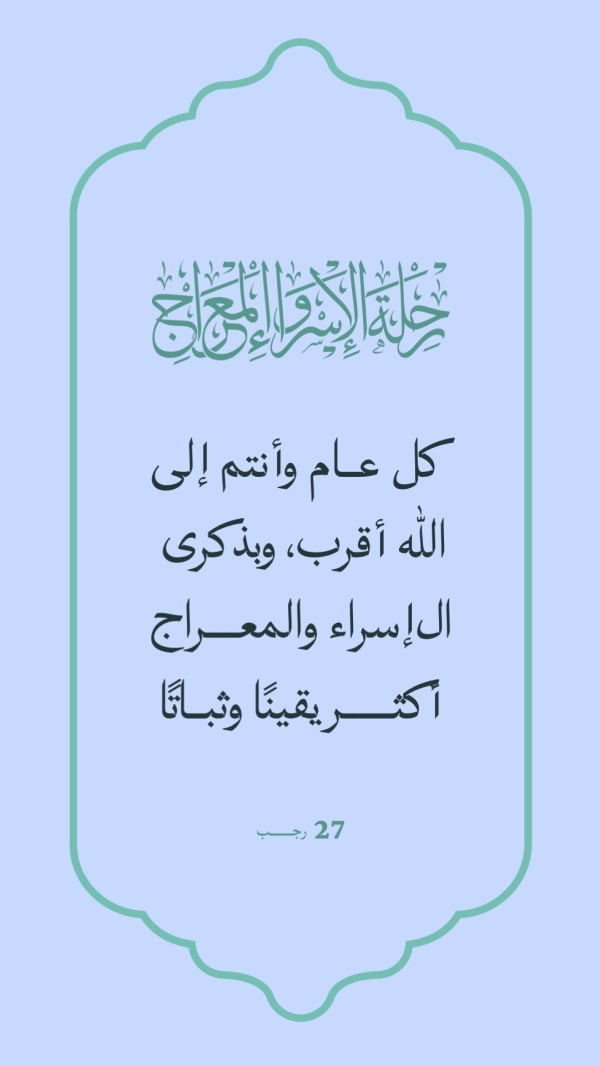 رِحْلَةُ الإِسْرَاءِ وَالمِعْرَاجِ
كل عـام وأنتم إلى
الله أقرب، وبذكرى
الإسراء والمعـراج
أكثـر يقينًا وثبـاتًا
27 رجـب